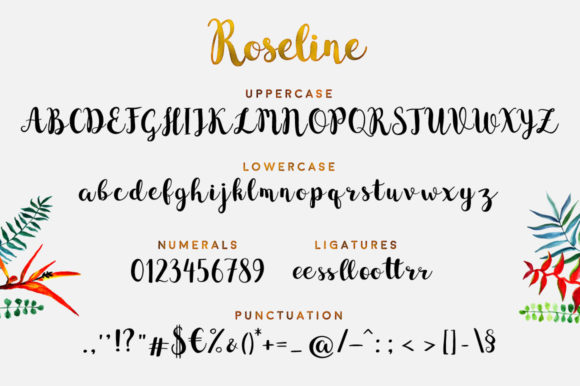 Roseline
UPPERCASE
ABCDEFGHIJKLMNOPQRSTUVWXYZ
LOWERCASE
abcdefghijklmnopqrstuvwxyz
NUMERALS
0123456789
LIGATURES
eesslloottrr
PUNCTUATION
.,''!?"#$€%&()*+=_@/–^:;<>[]-\§